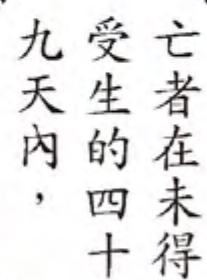 亡者在未得
受生的四十
九天內，